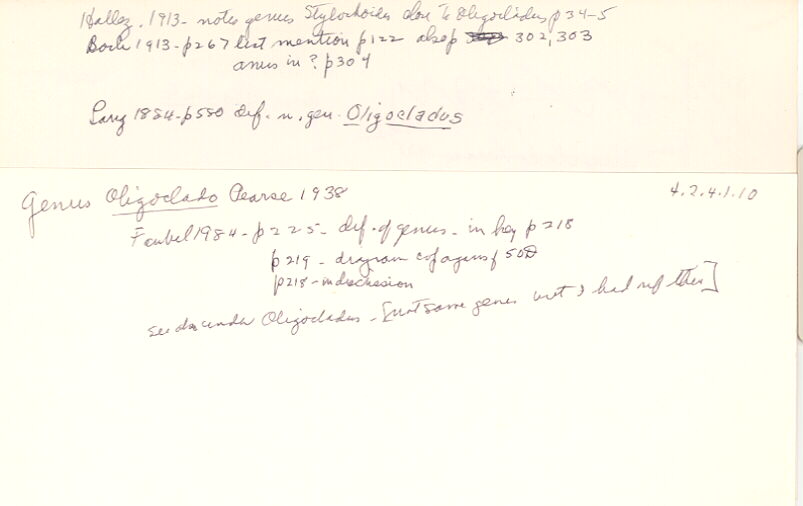 Hallez. 1913 - notes genus Stylochoides close to Oligoclades p 34-5
Bock 1913 - p267 list mention p122 also p 302, 303
anus in? p304
Lang 1884 - p580 def. n. gen. Oligocladus
Genus Oligoclado Pearse 1938 4.2.4.1.10
Faubel 1984 - p 225 - def. of genus - in key p 218
p219 - diagram cop agens f 50D
p218 - in discussion
see also under Oligocladus - [not same genus but I had ref there]